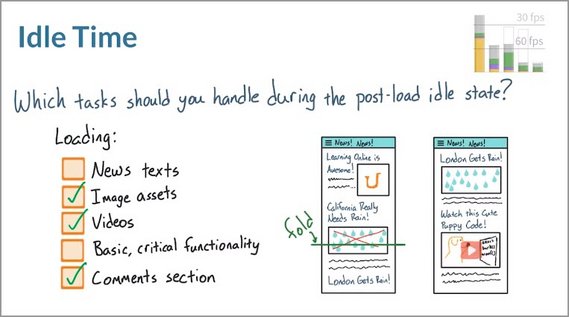 Idle Time
30 fps
60 fps
Which tasks should you handle during the post-load idle state?
Loading:
News texts
Image assets
Videos
Basic, critical functionality
Comments section
fold
News! News!
Learning Online is
Awesome!
California Really
Needs Rain!
London Gets Rain!
News! News!
London Gets Rain!
Watch this Cute
Puppy Code!